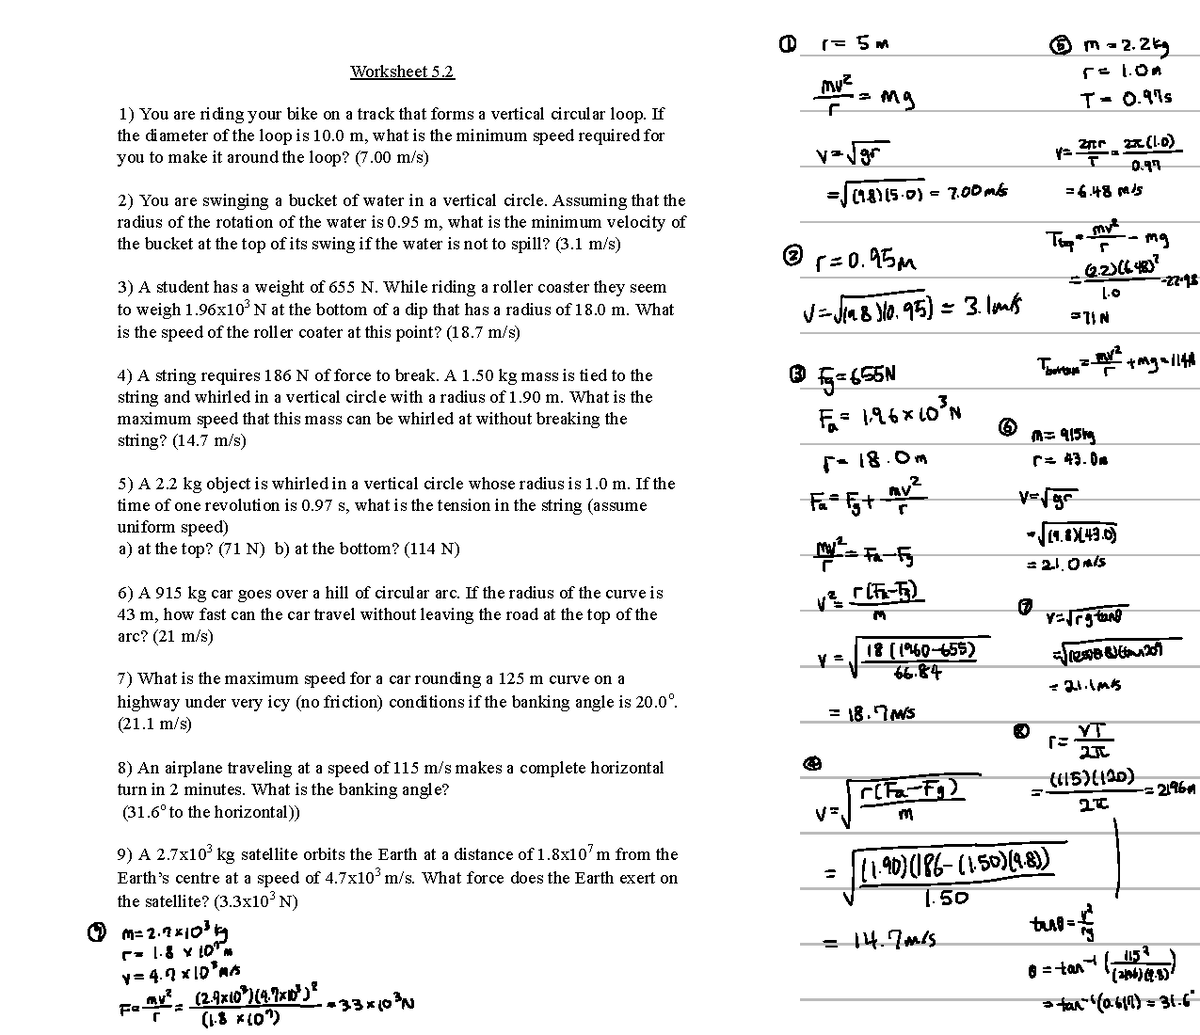 Worksheet 5.2
1) You are riding your bike on a track that forms a vertical circular loop. If
the diameter of the loop is 10.0 m, what is the minimum speed required for
you to make it around the loop? (7.00 m/s)
2) You are swinging a bucket of water in a vertical circle. Assuming that the
radius of the rotation of the water is 0.95 m, what is the minimum velocity of
the bucket at the top of its swing if the water is not to spill? (3.1 m/s)
3) A student has a weight of 655 N. While riding a roller coaster they seem
to weigh 1.96x10³ N at the bottom of a dip that has a radius of 18.0 m. What
is the speed of the roller coater at this point? (18.7 m/s)
4) A string requires 186 N of force to break. A 1.50 kg mass is tied to the
string and whirled in a vertical circle with a radius of 1.90 m. What is the
maximum speed that this mass can be whirled at without breaking the
string? (14.7 m/s)
5) A 2.2 kg object is whirled in a vertical circle whose radius is 1.0 m. If the
time of one revolution is 0.97 s, what is the tension in the string (assume
uniform speed)
a) at the top? (71 N) b) at the bottom? (114 N)
6) A 915 kg car goes over a hill of circular arc. If the radius of the curve is
43 m, how fast can the car travel without leaving the road at the top of the
arc? (21 m/s)
7) What is the maximum speed for a car rounding a 125 m curve on a
highway under very icy (no friction) conditions if the banking angle is 20.0°.
(21.1 m/s)
8) An airplane traveling at a speed of 115 m/s makes a complete horizontal
turn in 2 minutes. What is the banking angle?
(31.6° to the horizontal))
9) A 2.7x10³ kg satellite orbits the Earth at a distance of 1.8x10⁷ m from the
Earth's centre at a speed of 4.7x10³ m/s. What force does the Earth exert on
the satellite? (3.3x10³ N)
⑨ m = 2.7 × 10³ kg
r = 1.8 × 10⁷ m
v = 4.7 × 10³ m/s
F = mv²/r = (2.7×10³)(4.7×10³)²/(1.8 × 10⁷) = 3.3 × 10³ N
① r = 5 m
mv²/r = mg
v = √gr
= √(9.8)(5.0) = 7.00 m/s
② r = 0.95 m
v = √(9.8)(0.95) = 3.1 m/s
③ Fg = 655 N
Fa = 1.96 × 10³ N
r = 18.0 m
Fa = Fg + mv²/r
mv²/r = Fa - Fg
v² = r(Fa - Fg)/m
v = √18(1960-655)/66.84
= 18.7 m/s
④
v = √r(Fa - Fg)/m
= √(1.90)(186 - (1.50)(9.8))/1.50
= 14.7 m/s
⑤ m = 2.2 kg
r = 1.0 m
T = 0.97 s
v = 2πr/T = 2π(1.0)/0.97
= 6.48 m/s
Ttop = mv²/r - mg
= (2.2)(6.48)²/1.0
= 71 N
Tbottom = mv²/r + mg = 114N
⑥
m = 915 kg
r = 43.0 m
v = √gr
= √(9.8)(43.0)
= 21.0 m/s
⑦
v = √rg tanθ
= 21.1 m/s
⑧ r = vT/2π
= (115)(120)/2π = 2196 m
tanθ = v²/rg
θ = tan⁻¹(115²/(2196)(9.8))
= tan⁻¹(0.617) = 31.6°